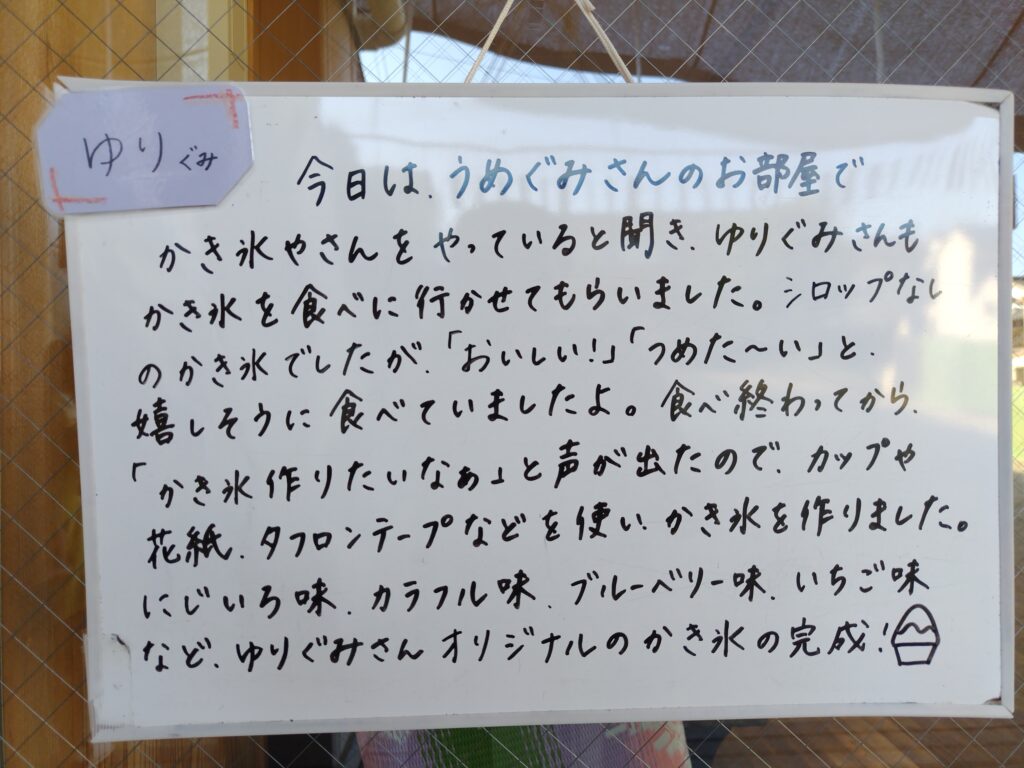 ゆりぐみ
今日は、うめぐみさんのお部屋で
かき氷やさんをやっていると聞き、ゆりぐみさんも
かき氷を食べに行かせてもらいました。シロップなし
のかき氷でしたが、「おいしい!」「つめた～い」と、
嬉しそうに食べていましたよ。食べ終わってから、
「かき氷作りたいなぁ」と声が出たので、カップや
花紙、タフロンテープなどを使いかき氷を作りました。
にじいろ味、カラフル味、ブルーベリー味、いちご味
など、ゆりぐみさんオリジナルのかき氷の完成!